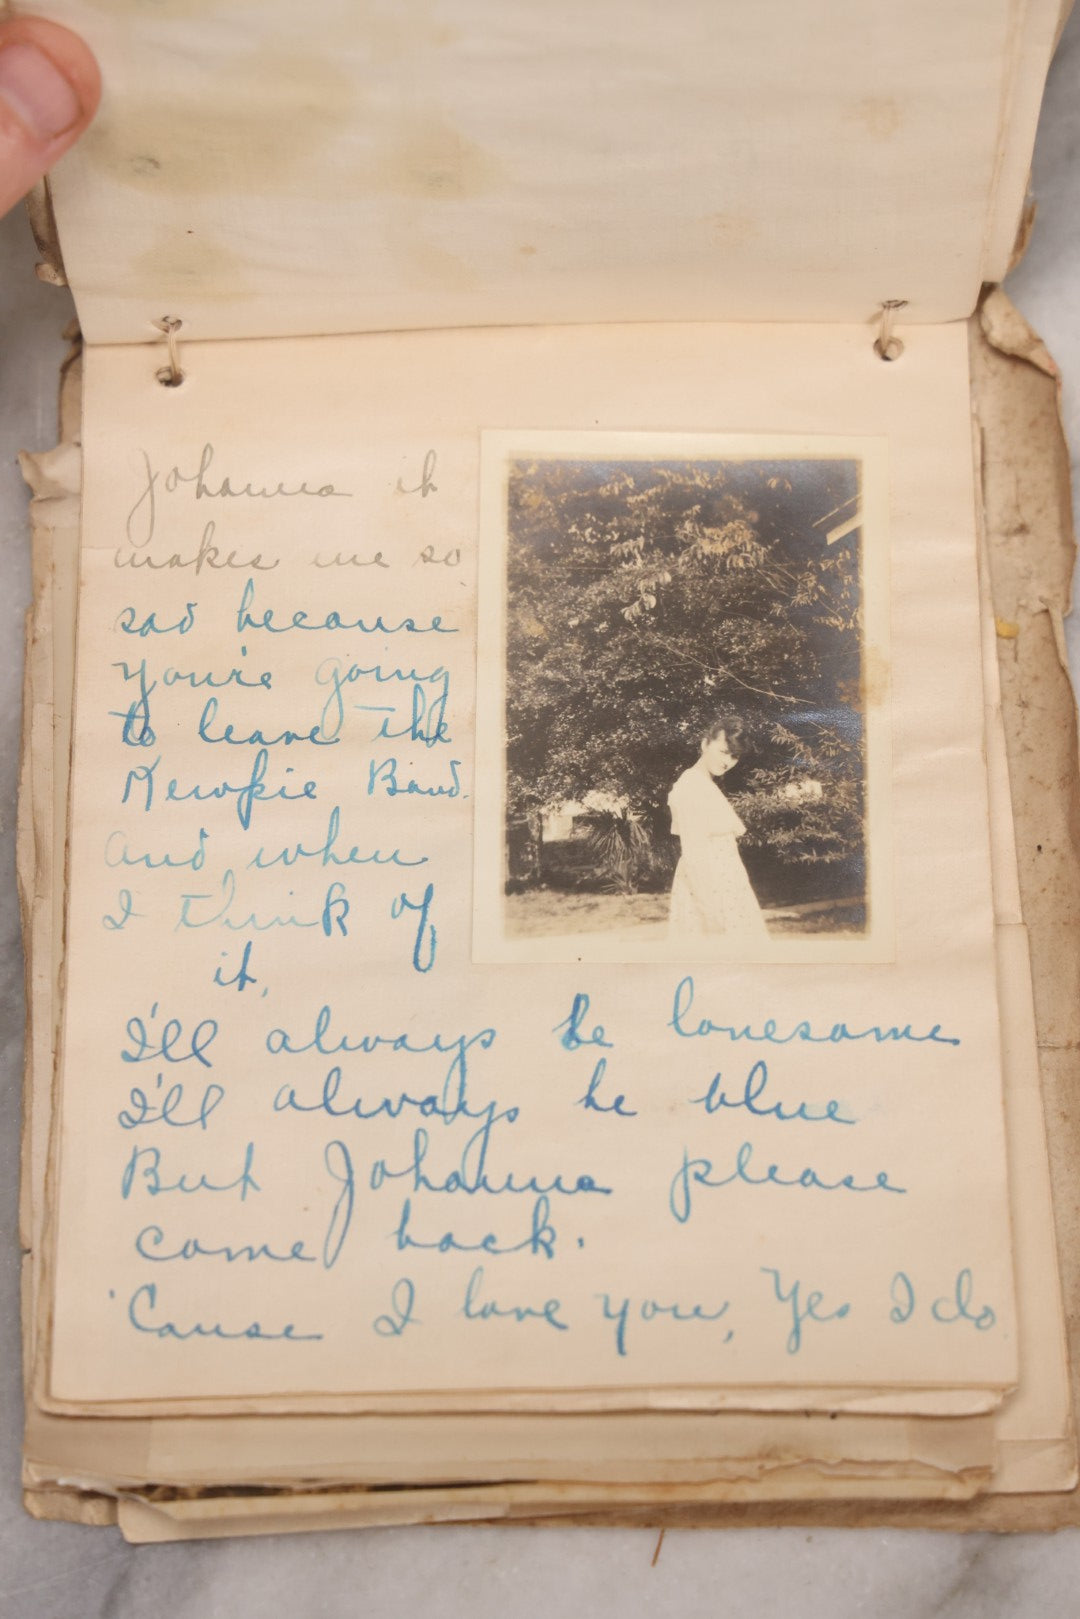 Johanna it
makes me so
sad because
you're going
to leave the
Kewpie Band.
And when
I think of
it,
I'll always be lonesome
I'll always be blue
But Johanna please
come back.
'Cause I love you, Yes I do